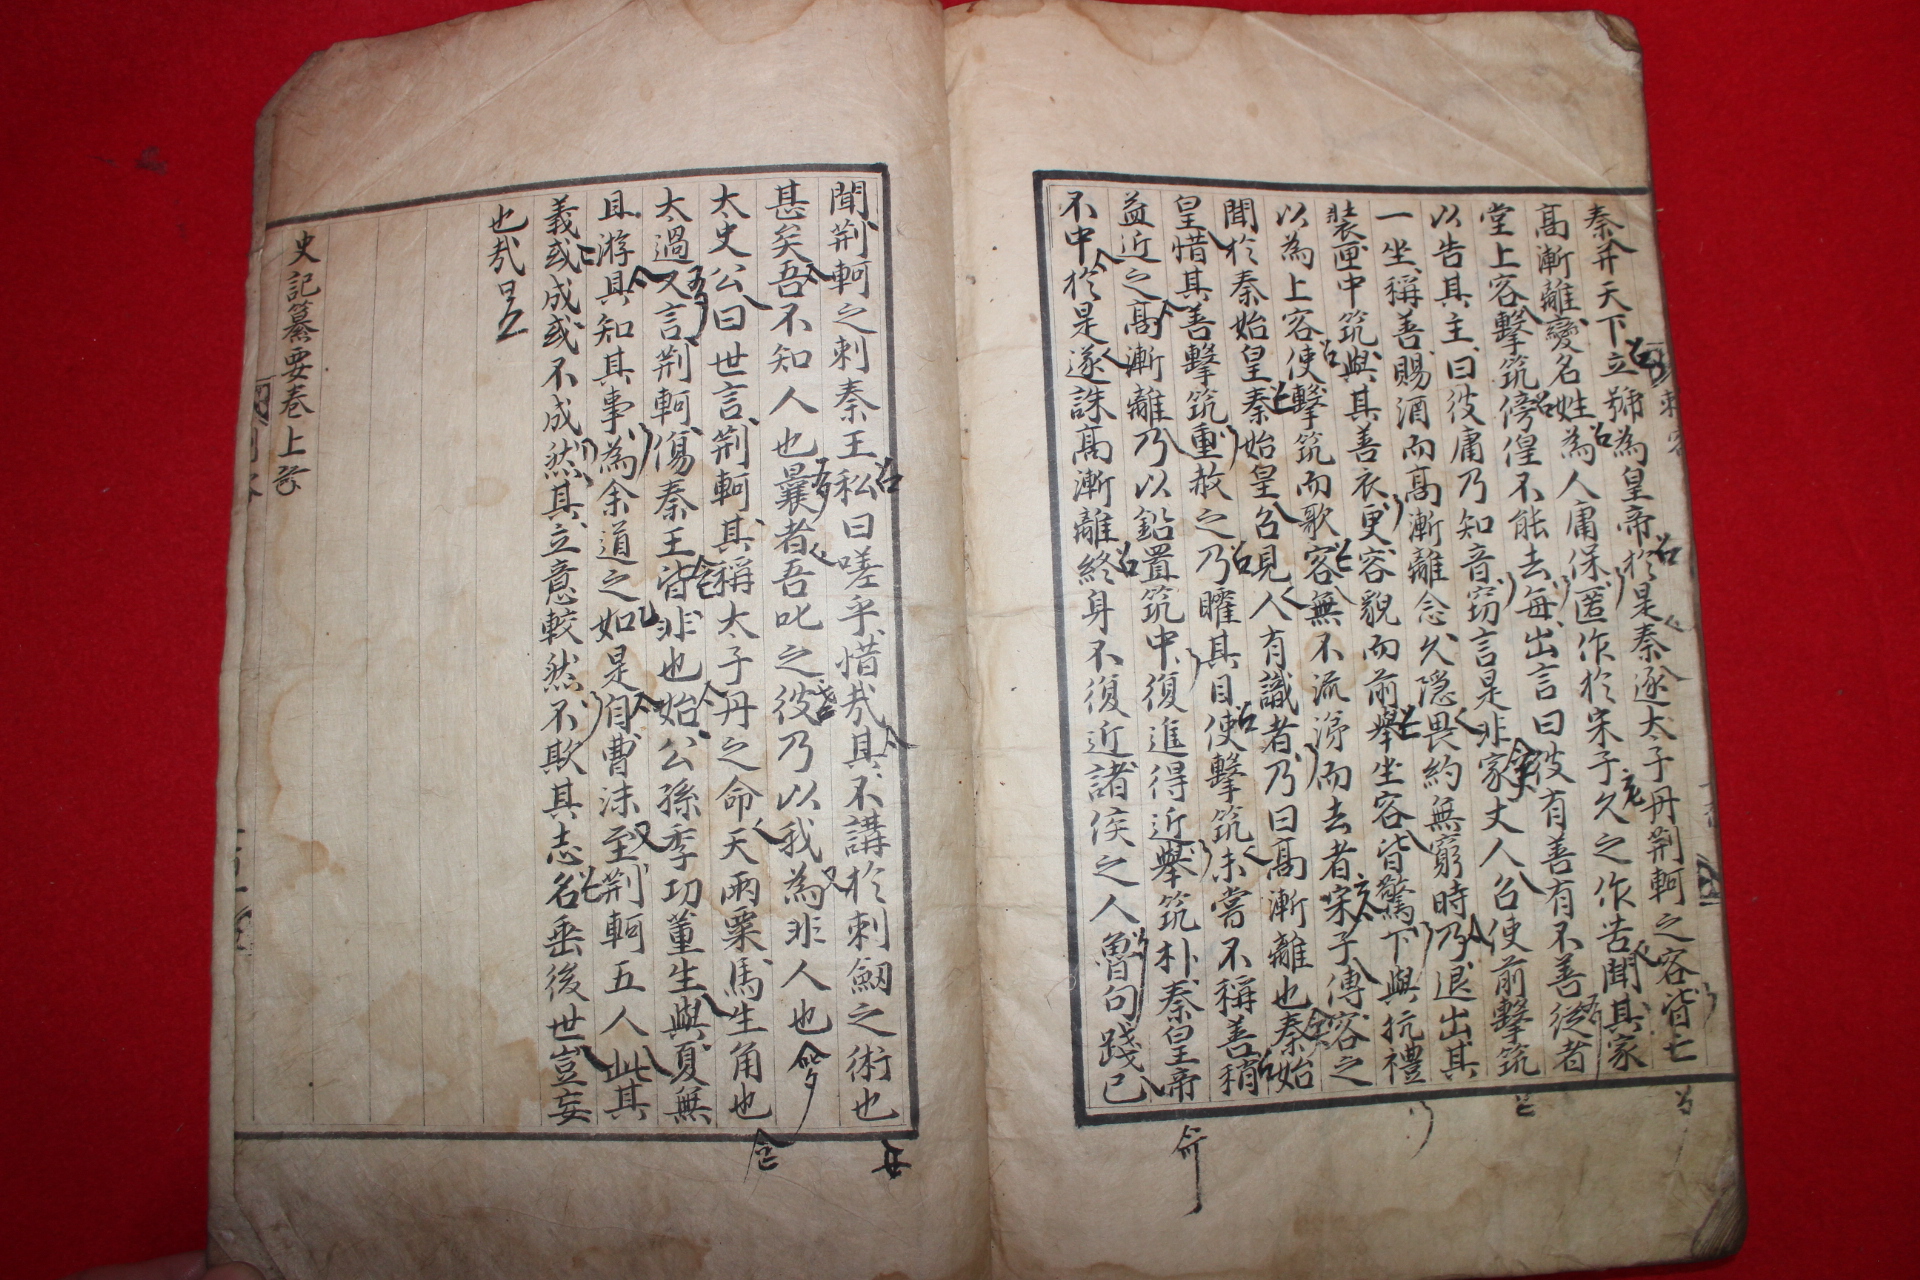 秦并天下立號為皇帝於是秦逐太子丹荊軻之客皆亡
高漸離變名姓為人庸保匿作於宋子久之作苦聞其家
堂上客擊筑傍偟不能去每出言曰彼有善有不善從者
以告其主曰彼庸乃知音竊言是非家丈人召使前擊筑
一坐稱善賜酒而高漸離念久隱畏約無窮時乃退出其
裝匣中筑與其善衣更容貌而前舉坐客皆驚下與抗禮
以為上客使擊筑而歌客無不流涕而去者宋子傳客之
聞於秦始皇秦始皇召見人有識者乃曰高漸離也秦始
皇惜其善擊筑重赦之乃矐其目使擊筑未嘗不稱善稍
益近之高漸離乃以鉛置筑中復進得近舉筑朴秦皇帝
不中於是遂誅高漸離終身不復近諸侯之人魯句踐已
聞荊軻之刺秦王私曰嗟乎惜哉其不講於刺劒之術也
甚矣吾不知人也曩者吾叱之彼乃以我為非人也
太史公曰世言荊軻其稱太子丹之命天雨粟馬生角也
太過又言荊軻傷秦王皆非也始公孫季功董生與夏無
且游具知其事為余道之如是自曹沫至荊軻五人此其
義或成或不成然其立意較然不欺其志名垂後世豈妄
也哉
史記纂要卷上終